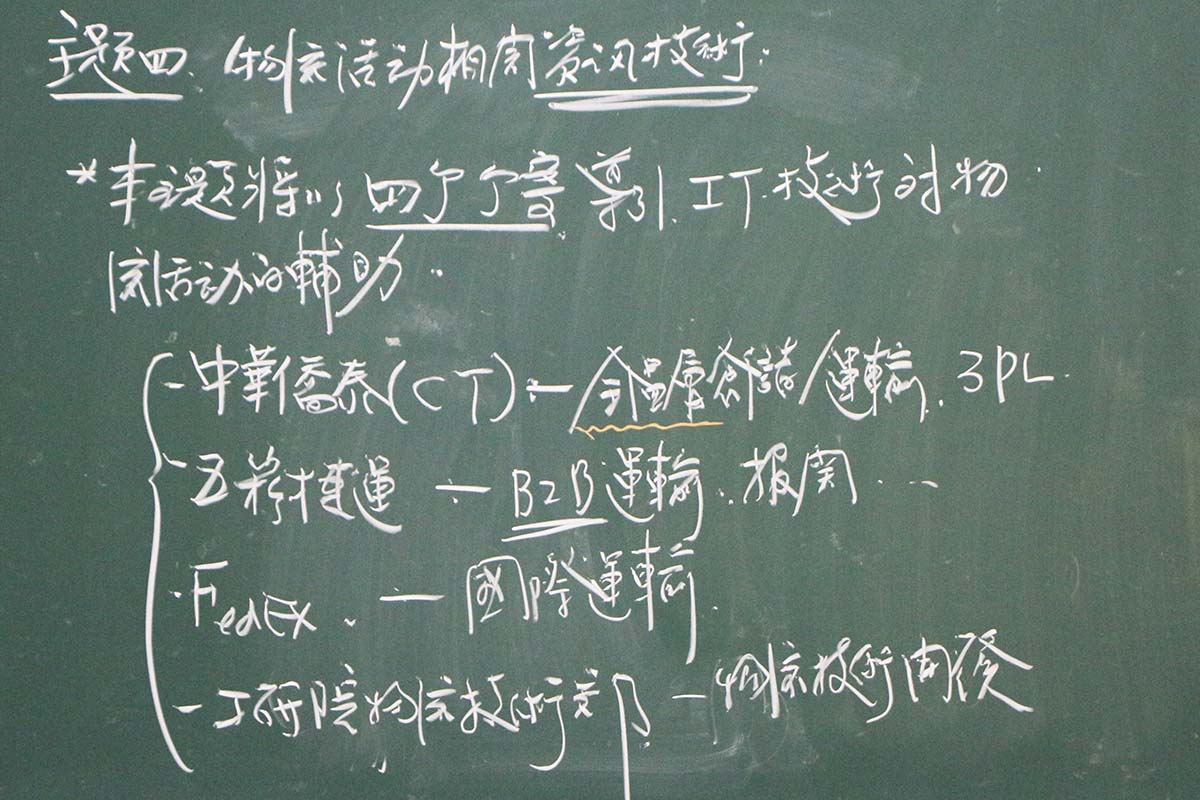 主題四、物流活动相関資讯技術.
*本主題將以四个个案導引IT技術对物
流活动的輔助.
-中華僑泰(CT)-全溫層倉儲/運輸、3PL.
-五彩捷運-B2B運輸、报関...
·FedEx.-國際運輸.
-工研院物流技術部-物流技術開發